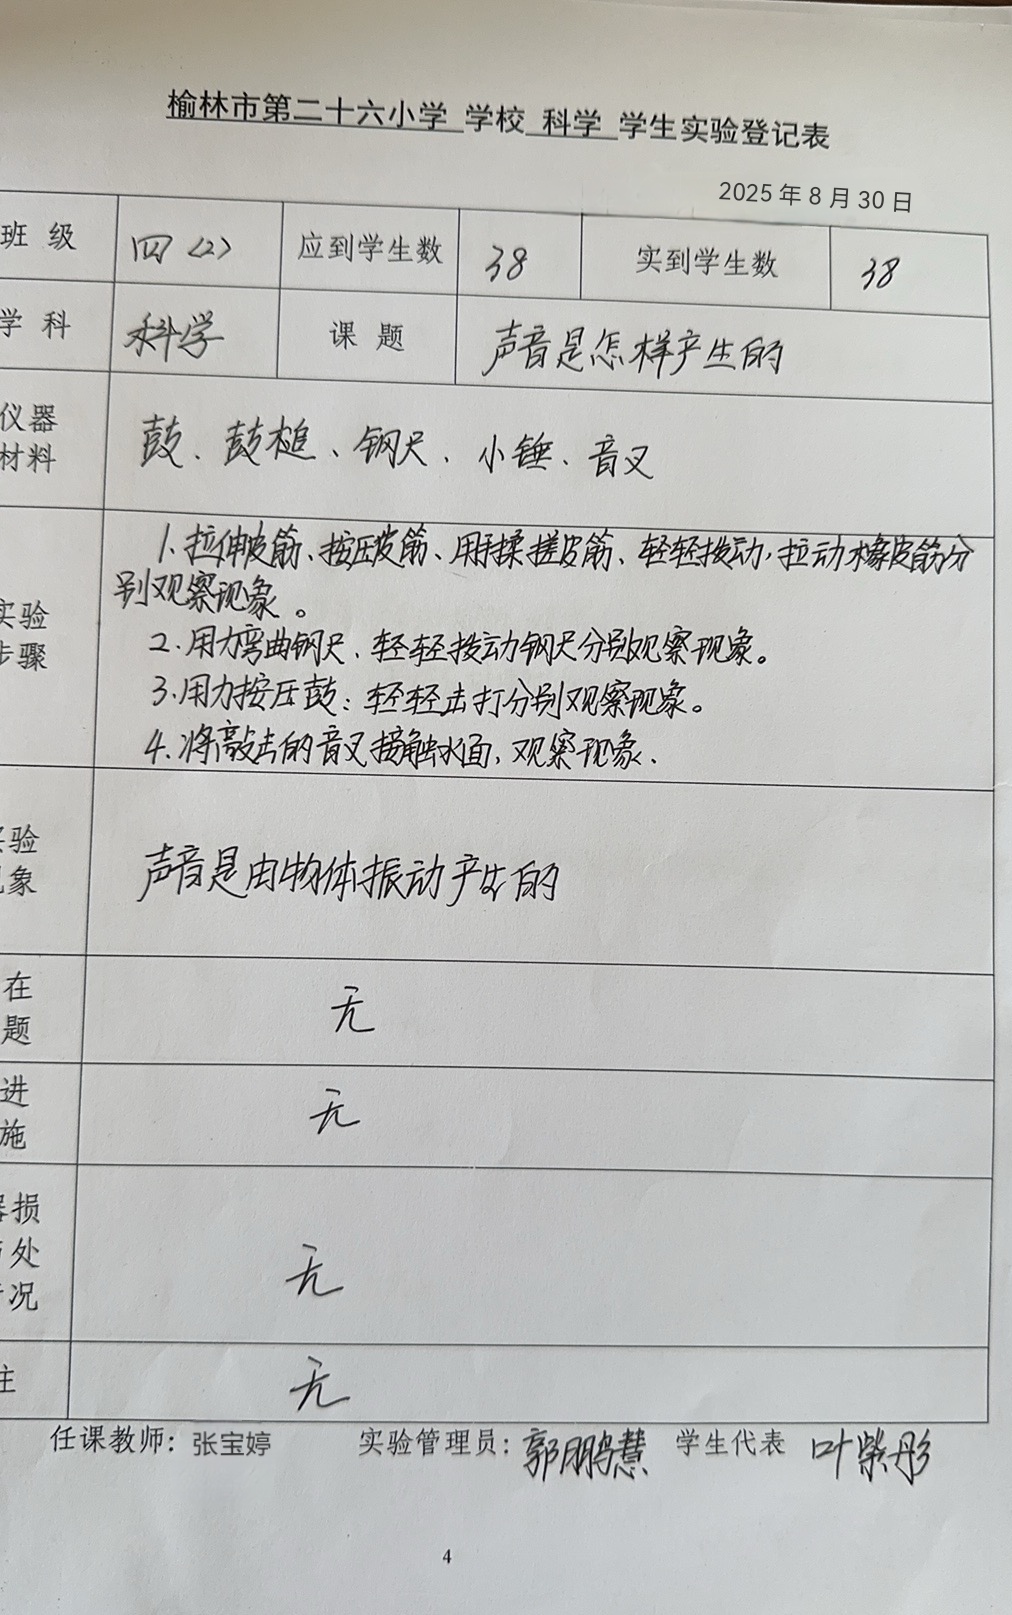 榆林市第二十六小学 学校 科学 学生实验登记表
2025年8月30日
班 级 四(2) 应到学生数 38 实到学生数 38
学 科 科学 课 题 声音是怎样产生的
仪器
材料
鼓、鼓槌、钢尺、小锤、音叉
实验
步骤
1、拉伸皮筋、按压皮筋、用手揉搓皮筋、轻轻拨动,拉动橡皮筋分
别观察现象。
2.用力弯曲钢尺、轻轻拨动钢尺分别观察现象。
3.用力按压鼓:轻轻击打分别观察现象。
4.将敲击的音叉接触水面,观察现象、
验
象
声音是由物体振动产生的
在
题
无
进
施
无
损
处
况
无
注
无
任课教师:张宝婷 实验管理员:郭鹏慧 学生代表 叶紫彤
4